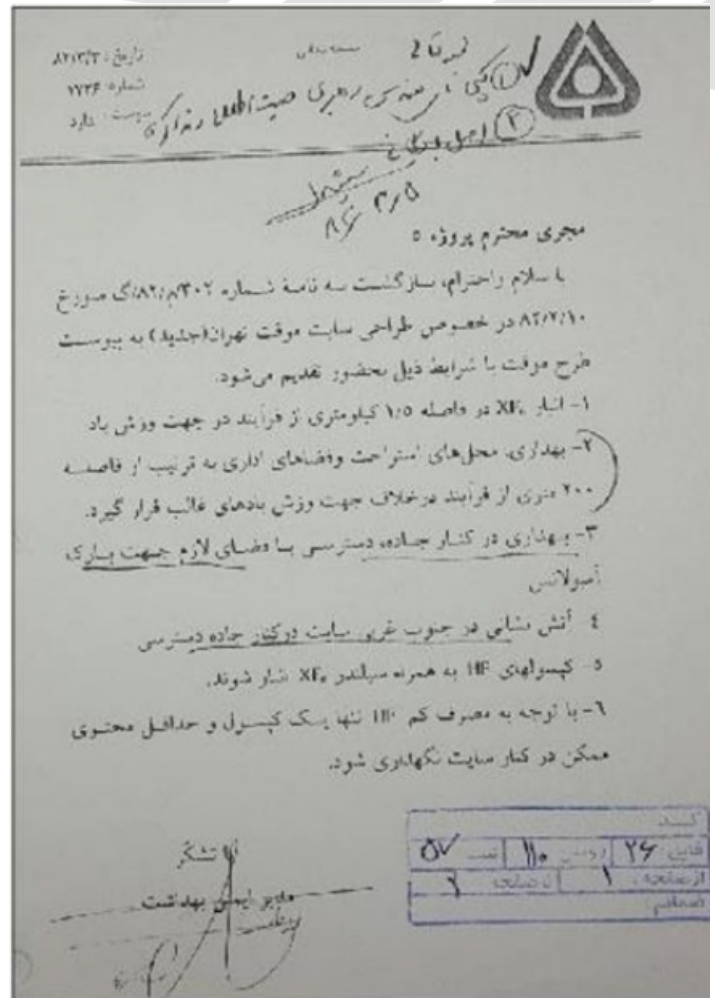 تاریخ: ۸۲/۳/۳
شماره: ۷۷۳۶
پیوست: دارد
مجری محترم پروژه ۵
با سلام و احترام، بازگشت به نامهٔ شماره ۳۰۲/م/۸۲/ک مورخ
۸۲/۲/۱۰ در خصوص طراحی سایت موقت تهران(جدید) به پیوست
طرح موقت با شرایط ذیل بحضور تقدیم می‌شود.
۱- انبار XF₆ در فاصله ۱/۵ کیلومتری از فرآیند در جهت وزش باد
۲- بهداری، محل‌های استراحت وفضاهای اداری به ترتیب از فاصله
۲۰۰ متری از فرآیند درخلاف جهت وزش بادهای غالب قرار گیرد.
۳- بهداری در کنار جاده، دسترسی با فضای لازم جهت پارک
آمبولانس
۴- آتش نشانی در جنوب غربی سایت درکنار جاده دسترسی
۵- کپسولهای HF به همراه سیلندر XF₆ انبار شوند.
۶- با توجه به مصرف کم HF تنها یک کپسول و حداقل محتوی
ممکن در کنار سایت نگهداری شود.
با تشکر
مدیر ایمنی بهداشت
فایل: ۲۶ ۱۱۰ ۵۷
از صفحه: ۱ تا صفحه: ۲